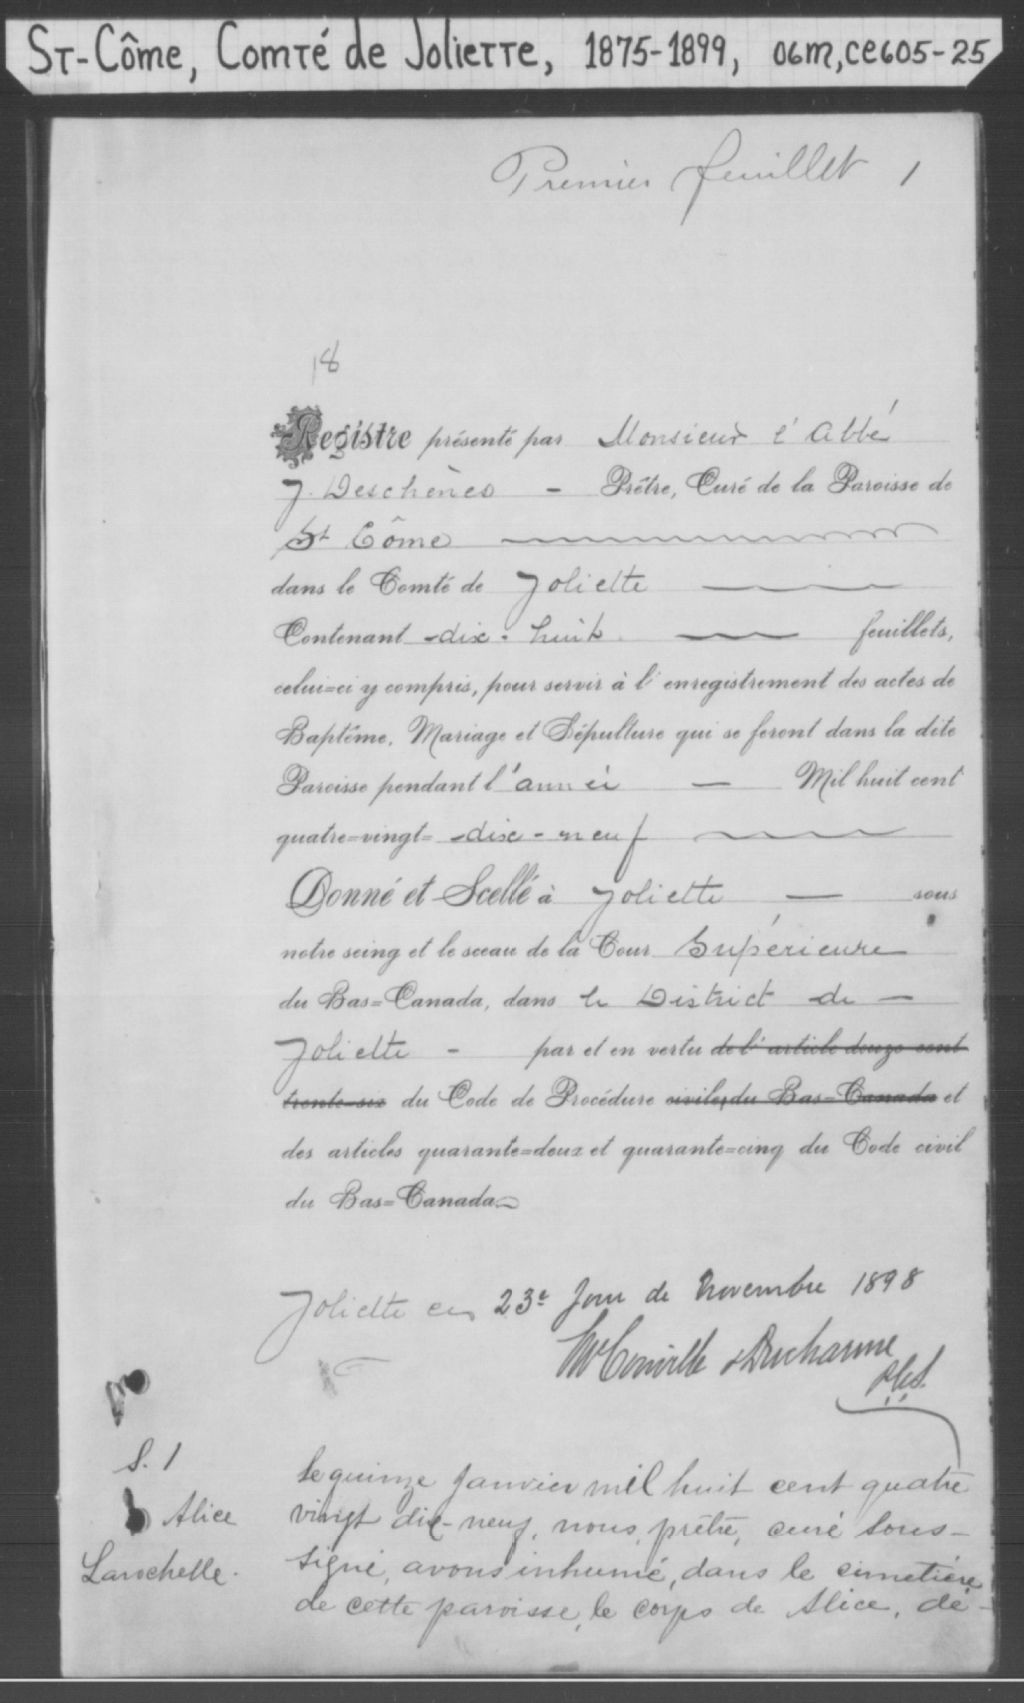 St-Côme, Comté de Joliette, 1875-1899, 06m,ce605-25
Premier feuillet 1
18
Registre présenté par Monsieur l'Abbé
J. Deschènes - Prêtre, Curé de la Paroisse de
St Côme
dans le Comté de Joliette
Contenant dix-huit feuillets,
celui=ci y compris, pour servir à l'enregistrement des actes de
Baptême, Mariage et Sépulture qui se feront dans la dite
Paroisse pendant l'année — Mil huit cent
quatre=vingt=dix-neuf
Donné et Scellé à Joliette — sous
notre seing et le sceau de la Cour Supérieure
du Bas=Canada, dans le District de —
Joliette - par et en vertu de l'article douze cent
trente-six du Code de Procédure civile, du Bas=Canada et
des articles quarante=deux et quarante=cinq du Code civil
du Bas=Canada
Joliette ce 23e Jour de Novembre 1898
McConville & Ducharme
P.C.S.
S. 1
Alice
Larochelle.
Le quinze Janvier mil huit cent quatre
vingt dix-neuf, nous, prêtre, curé sous-
signé, avons inhumé, dans le cimetière
de cette paroisse, le corps de Alice, dé-